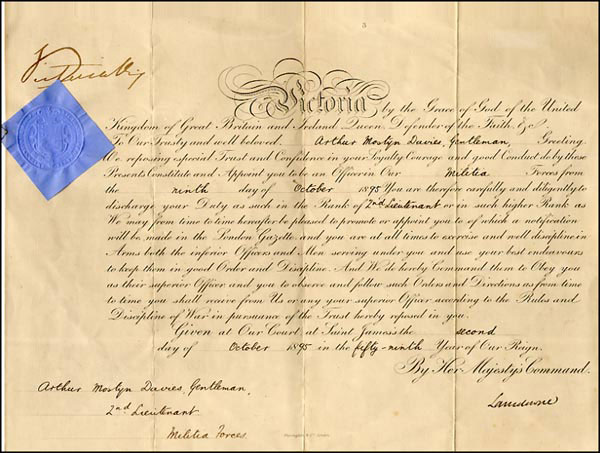 Victoria by the Grace of God of the United
Kingdom of Great Britain and Ireland Queen, Defender of the Faith, &c
To Our Trusty and well beloved Arthur Mostyn Davies, Gentleman, Greeting
We reposing especial Trust and Confidence in your Loyalty Courage and good Conduct do by these
Presents Constitute and Appoint you to be an Officer in Our Militia Forces from
the ninth day of October 1895 You are therefore carefully and diligently to
discharge your Duty as such in the Rank of 2nd Lieutenant or in such higher Rank as
We may from time to time hereafter be pleased to promote or appoint you to of which a notification
will be made in the London Gazette and you are at all times to exercise and well discipline in
Arms both the inferior Officers and Men serving under you and use your best endeavours
to keep them in good Order and Discipline. And We do hereby Command them to Obey you
as their superior Officer and you to observe and follow such Orders and Directions as from time
to time you shall receive from Us or any your superior Officer according to the Rules and
Discipline of War in pursuance of the Trust hereby reposed in you.
Given at Our Court at Saint James's the second
day of October 1895 in the fifty-ninth Year of Our Reign.
By Her Majesty's Command.
Arthur Mostyn Davies, Gentleman,
Lansdowne
2nd Lieutenant
Militia Forces.